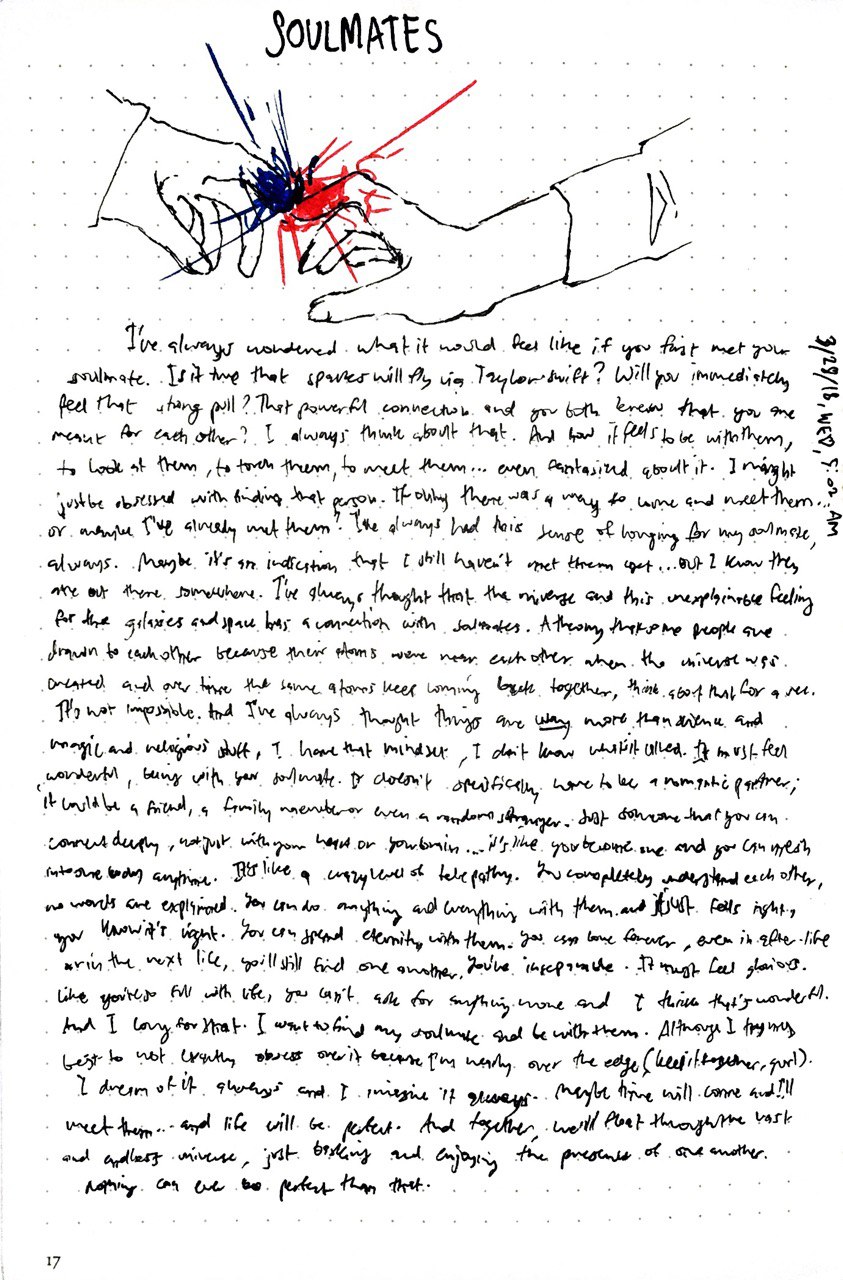 SOULMATES
I've always wondered what it would feel like if you first met your
soulmate. Is it true that sparks will fly via Taylor Swift? Will you immediately
feel that strong pull? That powerful connection and you both knew that you are
meant for each other? I always think about that. And how it feels to be with them,
to look at them, to touch them, to meet them... even fantasized about it. I might
just be obsessed with finding that person. If only there was a way to come and meet them...
or maybe I've already met them? I've always had this sense of longing for my soulmate,
always. Maybe it's an indication that I still haven't met them yet... but I know they
are out there somewhere. I've always thought that the universe and this unexplainable feeling
for the galaxies and space has a connection with soulmates. A theory that some people are
drawn to each other because their atoms were near each other when the universe was
created and over time the same atoms keep coming back together, think about that for a sec.
It's not impossible. And I've always thought things are way more than science and
magic and religious stuff, I have that mindset, I don't know what it's called. It must feel
wonderful, being with your soulmate. It doesn't specifically have to be a romantic partner;
it could be a friend, a family member or even a random stranger. Just someone that you can
connect deeply, not just with your heart or your brain... it's like you become one and you can mesh
into one body anytime. It's like a crazy level of telepathy. You completely understand each other,
no words are explained. You can do anything and everything with them and it just feels right,
you know it's right. You can spend eternity with them. You can love forever, even in after-life
or in the next life, you'll still find one another. You're inseparable. It must feel glorious.
Like you're so full with life, you can't ask for anything more and I think that's wonderful.
And I long for that. I want to find my soulmate and be with them. Although I try my
best to not exactly obsess over it because I'm nearly over the edge (keep it together, gurl).
I dream of it always and I imagine it always. Maybe time will come and I'll
meet them... and life will be perfect. And together, we'll float through the vast
and endless universe, just basking and enjoying the presence of one another.
Nothing can ever be perfect than that.
3/28/18, WED, 5:02 AM
17